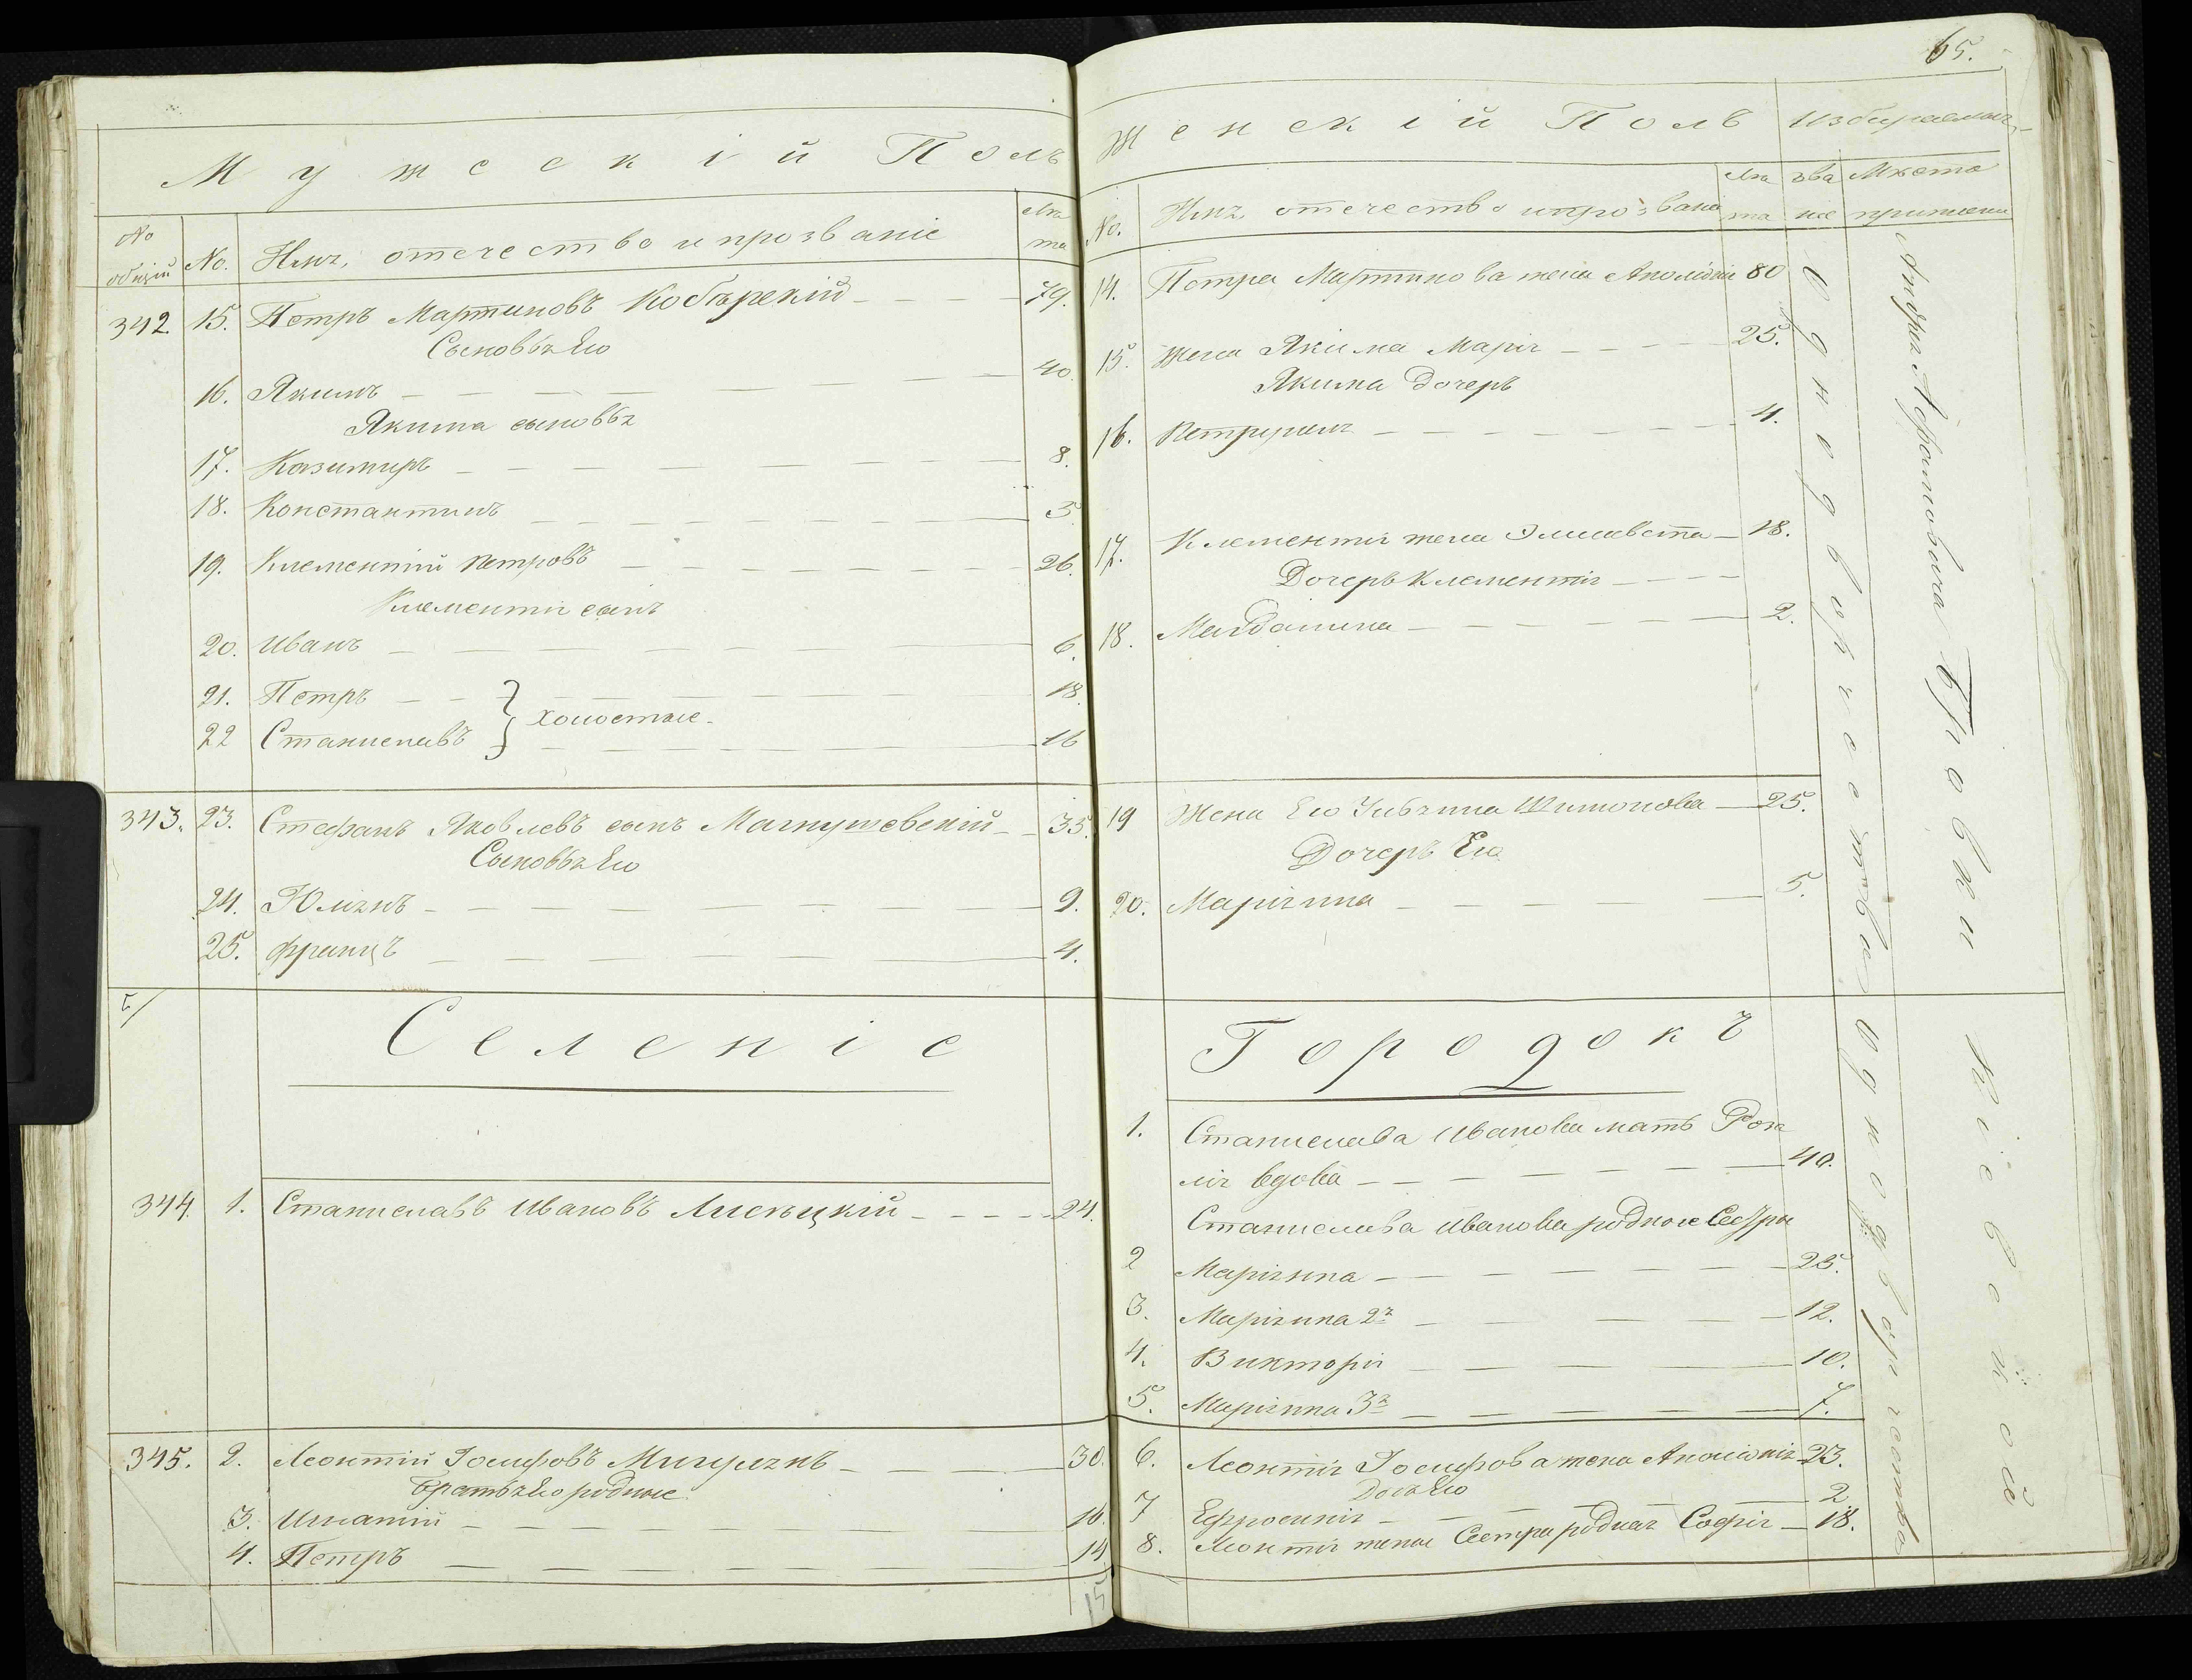 65.
Мужескій Полъ
№ общій
№.
Имя, отечество и прозваніе
Лѣта
342. 15. Петръ Мартиновъ Кобѣрскій 79.
Сыновья Его
16. Якимъ 40.
Якима сыновья
17. Казимиръ 8.
18. Константинъ 5.
19. Клементій Петровъ 26.
Клементія сынъ
20. Иванъ 6.
21. Петръ 18.
холостые
22 Станиславъ 16
343. 23. Стефанъ Яковлевъ сынъ Магнушевскій 35.
Сыновья Его
24. Юліянъ 9.
25. Францъ 4.
Селеніе
344. 1. Станиславъ Ивановъ 24.
345. 2. Леонтій Іосифовъ 30.
Братья Его родные
3. Игнатій 16.
4. Петръ 14
15
Женскій Полъ
Избираемыя
№.
Имя отечество и прозвание
Лѣта
зва ніе
Мѣсто
14. Петра Мартинова жена Аполіонія 80
15. Жена Якима Марія 25.
Якима дочерь
16. Петрунеля 4.
17. Клементія жена Элисавета 18.
Дочерь Клементія
18. Магдалина 2.
19 Жена Его Шимонова 25.
Дочерь Его
20. Маріянна 5.
Однодворчества
Андрея
Городокъ
1. Станислава Иванова мать Роза
лія вдова 40.
Станислава Иванова родные Сестры
2 Маріянна 25.
3. Маріянна 2я 12.
4. Викторія 10.
5. Маріянна 3я 7.
6. Леонтія Іосифова жена Аполіонія 23.
Дочь Его
7 Ефросинія 2
8. Леонтія жены Сестра родная Софія 18.
Однодворчества
Кіевской